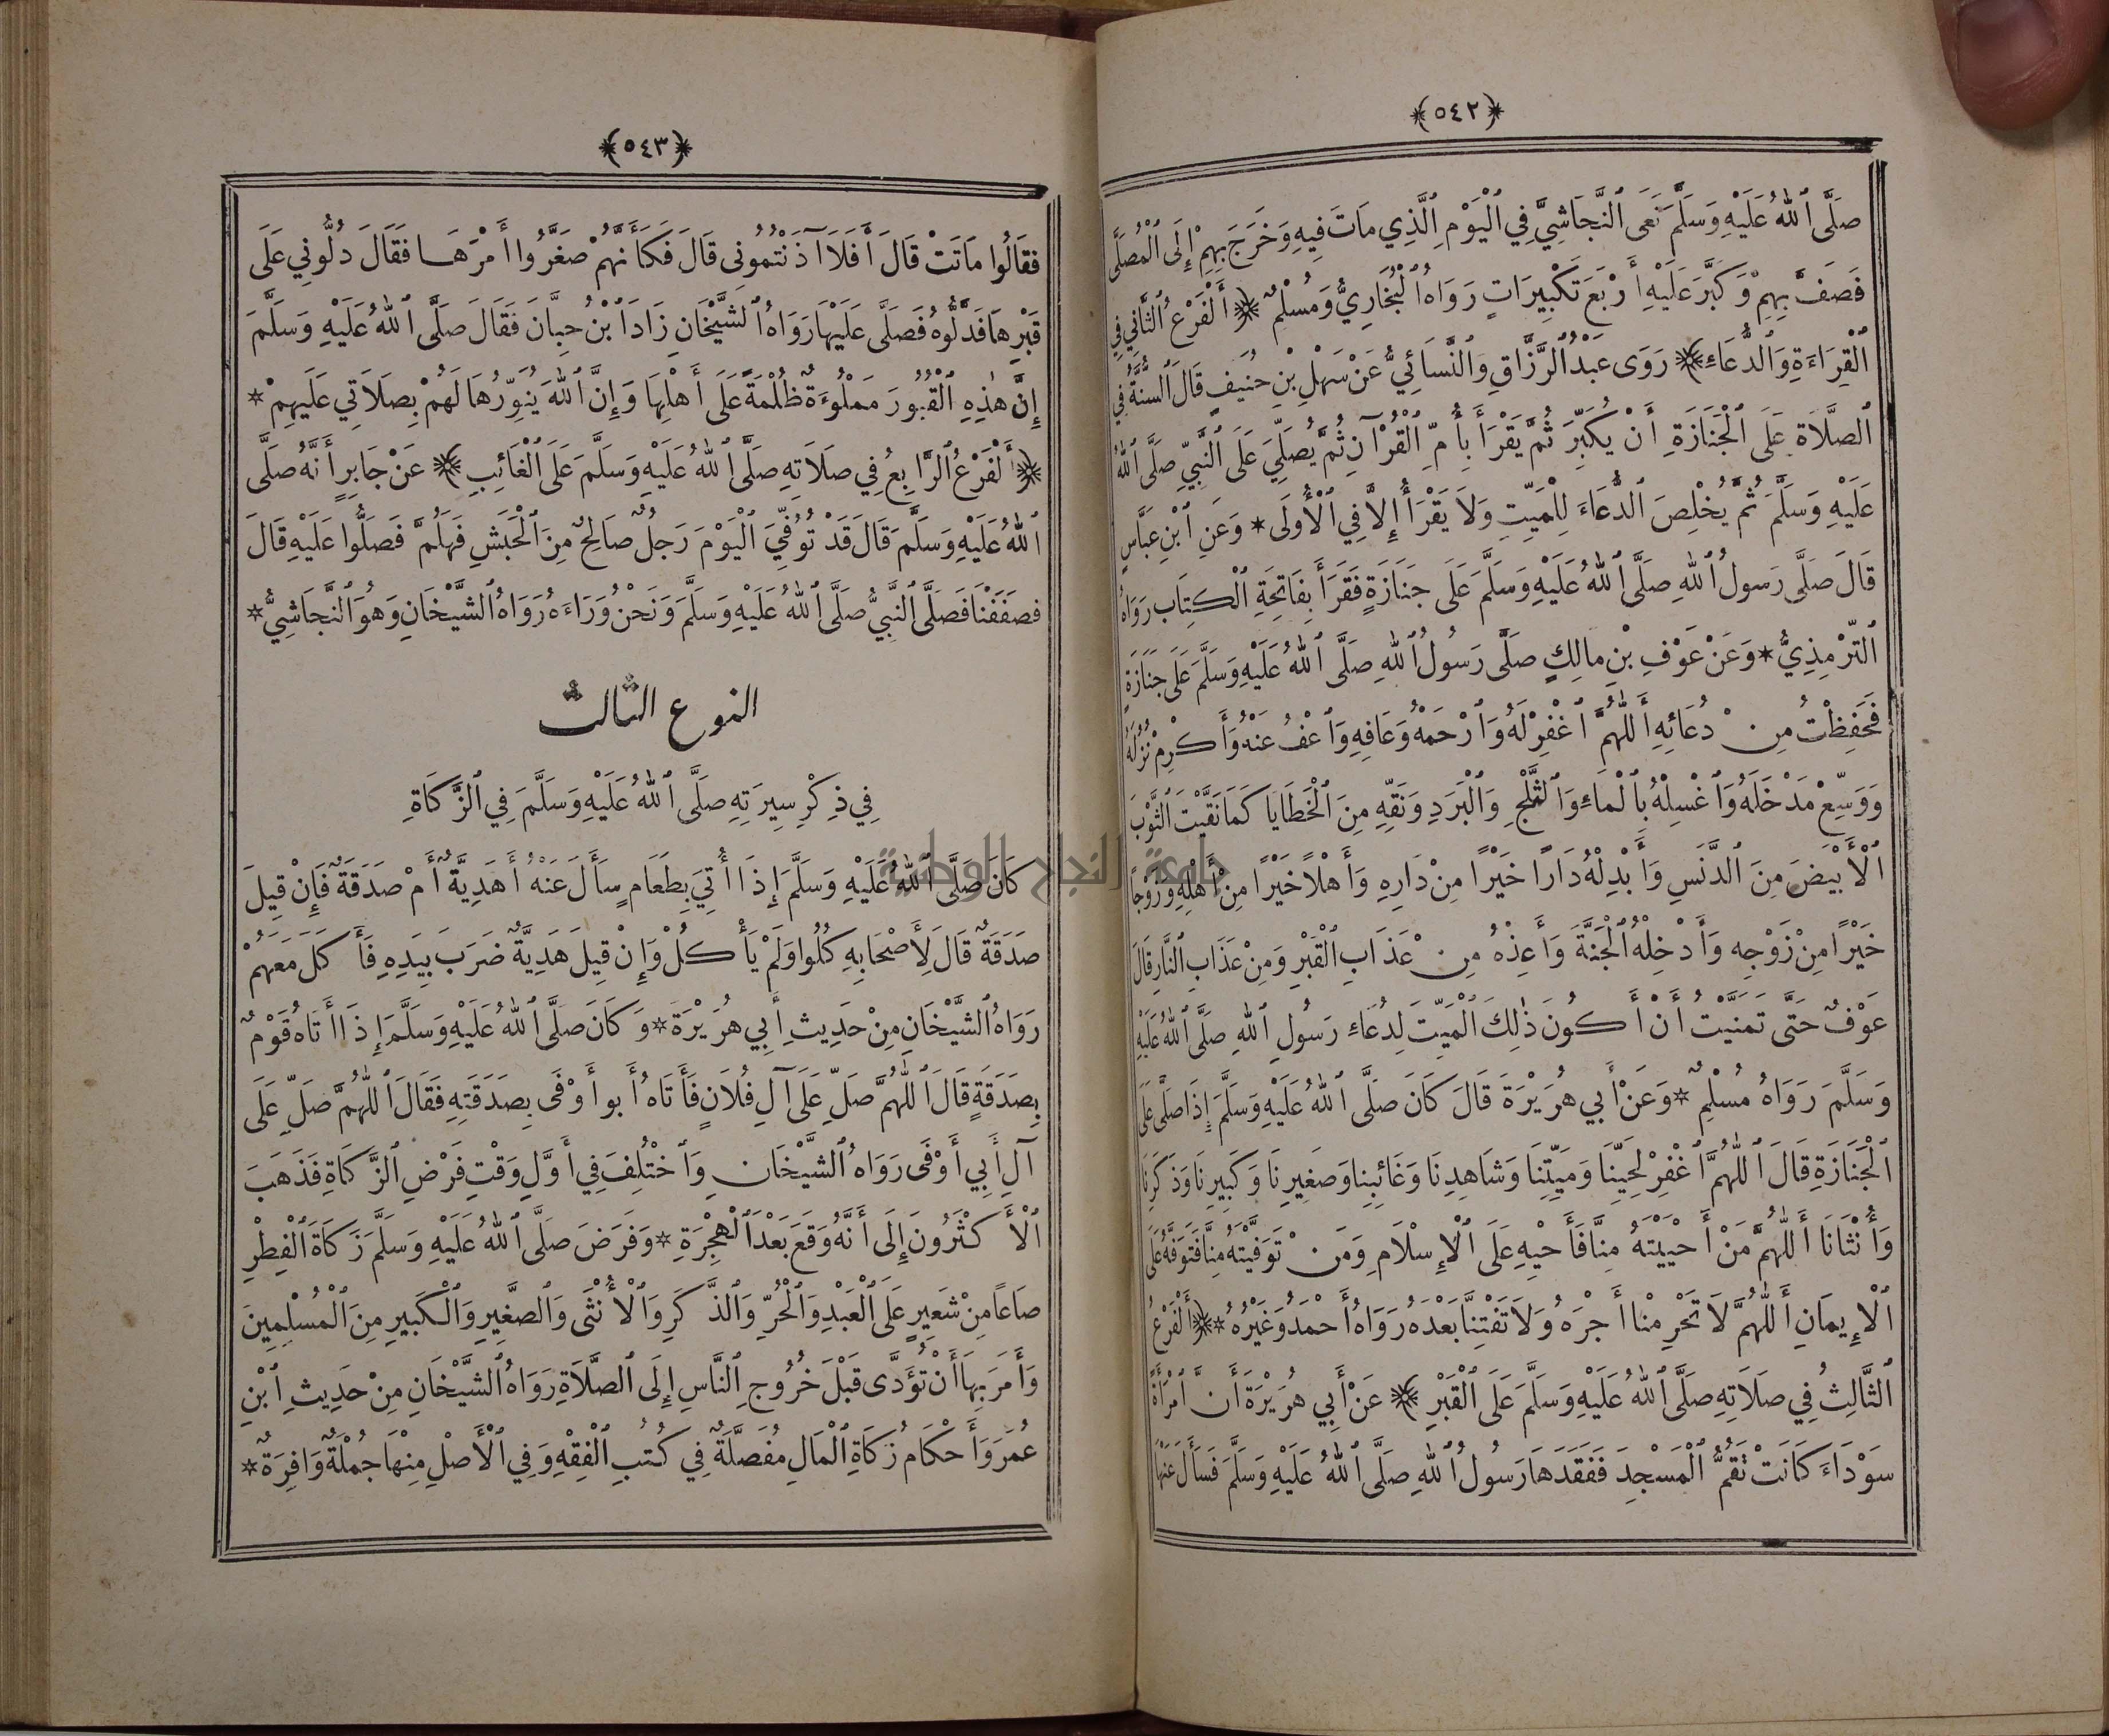 ﴿٥٤٢﴾
صَلَّى ٱللهُ عَلَيْهِ وَسَلَّمَ نَعَى ٱلنَّجَاشِيَّ فِي ٱلْيَوْمِ ٱلَّذِي مَاتَ فِيهِ وَخَرَجَ بِهِمْ إِلَى ٱلْمُصَلَّى
فَصَفَّ بِهِمْ وَكَبَّرَ عَلَيْهِ أَرْبَعَ تَكْبِيرَاتٍ رَوَاهُ ٱلْبُخَارِيُّ وَمُسْلِمٌ ﴿أَلْفَرْعُ ٱلثَّانِي فِي
ٱلْقِرَاءَةِ وَٱلدُّعَاءِ﴾ رَوَى عَبْدُ ٱلرَّزَّاقِ وَٱلنَّسَائِيُّ عَنْ سَهْلِ بْنِ حُنَيفٍ قَالَ ٱلسُّنَّةُ فِي
ٱلصَّلَاةِ عَلَى ٱلْجَنَازَةِ أَنْ يُكَبِّرَ ثُمَّ يَقْرَأَ بِأُمِّ ٱلْقُرْآنِ ثُمَّ يُصَلِّيَ عَلَى ٱلنَّبِيِّ صَلَّى ٱللهُ
عَلَيْهِ وَسَلَّمَ ثُمَّ يُخْلِصَ ٱلدُّعَاءَ لِلْمَيِّتِ وَلَا يَقْرَأُ إِلَّا فِي ٱلْأُولَى * وَعَنِ ٱبْنِ عَبَّاسٍ
قَالَ صَلَّى رَسُولُ ٱللهِ صَلَّى ٱللهُ عَلَيْهِ وَسَلَّمَ عَلَى جَنَازَةٍ فَقَرَأَ بِفَاتِحَةِ ٱلْكِتَابِ رَوَاهُ
ٱلتِّرْمِذِيُّ * وَعَنْ عَوْفِ بْنِ مَالِكٍ صَلَّى رَسُولُ ٱللهِ صَلَّى ٱللهُ عَلَيْهِ وَسَلَّمَ عَلَى جَنَازَةٍ
فَحَفِظْتُ مِنْ دُعَائِهِ أَللّٰهُمَّ ٱغْفِرْ لَهُ وَٱرْحَمْهُ وَعَافِهِ وَٱعْفُ عَنْهُ وَأَكْرِمْ نُزُلَهُ
وَوَسِّعْ مَدْخَلَهُ وَٱغْسِلْهُ بِٱلْمَاءِ وَٱلثَّلْجِ وَٱلْبَرَدِ وَنَقِّهِ مِنَ ٱلْخَطَايَا كَمَا نَقَّيْتَ ٱلثَّوْبَ
ٱلْأَبْيَضَ مِنَ ٱلدَّنَسِ وَأَبْدِلْهُ دَارًا خَيْرًا مِنْ دَارِهِ وَأَهْلًا خَيْرًا مِنْ أَهْلِهِ وَزَوْجًا
خَيْرًا مِنْ زَوْجِهِ وَأَدْخِلْهُ ٱلْجَنَّةَ وَأَعِذْهُ مِنْ عَذَابِ ٱلْقَبْرِ وَمِنْ عَذَابِ ٱلنَّارِ قَالَ
عَوْفٌ حَتَّى تَمَنَّيْتُ أَنْ أَكُونَ ذٰلِكَ ٱلْمَيِّتَ لِدُعَاءِ رَسُولِ ٱللهِ صَلَّى ٱللهُ عَلَيْهِ
وَسَلَّمَ رَوَاهُ مُسْلِمٌ * وَعَنْ أَبِي هُرَيْرَةَ قَالَ كَانَ صَلَّى ٱللهُ عَلَيْهِ وَسَلَّمَ إِذَا صَلَّى عَلَى
ٱلْجَنَازَةِ قَالَ ٱللّٰهُمَّ ٱغْفِرْ لِحَيِّنَا وَمَيِّتِنَا وَشَاهِدِنَا وَغَائِبِنَا وَصَغِيرِنَا وَكَبِيرِنَا وَذَكَرِنَا
وَأُنْثَانَا أَللّٰهُمَّ مَنْ أَحْيَيْتَهُ مِنَّا فَأَحْيِهِ عَلَى ٱلْإِسْلَامِ وَمَنْ تَوَفَّيْتَهُ مِنَّا فَتَوَفَّهُ عَلَى
ٱلْإِيمَانِ أَللّٰهُمَّ لَا تَحْرِمْنَا أَجْرَهُ وَلَا تَفْتِنَّا بَعْدَهُ رَوَاهُ أَحْمَدُ وَغَيْرُهُ * ﴿أَلْفَرْعُ
ٱلثَّالِثُ فِي صَلَاتِهِ صَلَّى ٱللهُ عَلَيْهِ وَسَلَّمَ عَلَى ٱلْقَبْرِ﴾ عَنْ أَبِي هُرَيْرَةَ أَنَّ ٱمْرَأَةً
سَوْدَاءَ كَانَتْ تَقُمُّ ٱلْمَسْجِدَ فَفَقَدَهَا رَسُولُ ٱللهِ صَلَّى ٱللهُ عَلَيْهِ وَسَلَّمَ فَسَأَلَ عَنْهَا
﴿٥٤٣﴾
فَقَالُوا مَاتَتْ قَالَ أَفَلَا آذَنْتُمُونِي قَالَ فَكَأَنَّهُمْ صَغَّرُوا أَمْرَهَا فَقَالَ دُلُّونِي عَلَى
قَبْرِهَا فَدَلُّوهُ فَصَلَّى عَلَيْهَا رَوَاهُ ٱلشَّيْخَانِ زَادَ ٱبْنُ حِبَّانَ فَقَالَ صَلَّى ٱللهُ عَلَيْهِ وَسَلَّمَ
إِنَّ هٰذِهِ ٱلْقُبُورَ مَمْلُوءَةٌ ظُلْمَةً عَلَى أَهْلِهَا وَإِنَّ ٱللهَ يُنَوِّرُهَا لَهُمْ بِصَلَاتِي عَلَيْهِمْ *
﴿أَلْفَرْعُ ٱلرَّابِعُ فِي صَلَاتِهِ صَلَّى ٱللهُ عَلَيْهِ وَسَلَّمَ عَلَى ٱلْغَائِبِ﴾ عَنْ جَابِرٍ أَنَّهُ صَلَّى
ٱللهُ عَلَيْهِ وَسَلَّمَ قَالَ قَدْ تُوُفِّيَ ٱلْيَوْمَ رَجُلٌ صَالِحٌ مِنَ ٱلْحَبَشِ فَهَلُمَّ فَصَلُّوا عَلَيْهِ قَالَ
فَصَفَفْنَا فَصَلَّى ٱلنَّبِيُّ صَلَّى ٱللهُ عَلَيْهِ وَسَلَّمَ وَنَحْنُ وَرَاءَهُ رَوَاهُ ٱلشَّيْخَانِ وَهُوَ ٱلنَّجَاشِيُّ *
النوع الثالث
فِي ذِكْرِ سِيرَتِهِ صَلَّى ٱللهُ عَلَيْهِ وَسَلَّمَ فِي ٱلزَّكَاةِ
جامعة النجاح الوطنية
كَانَ صَلَّى ٱللهُ عَلَيْهِ وَسَلَّمَ إِذَا أُتِيَ بِطَعَامٍ سَأَلَ عَنْهُ أَهَدِيَّةٌ أَمْ صَدَقَةٌ فَإِنْ قِيلَ
صَدَقَةٌ قَالَ لِأَصْحَابِهِ كُلُوا وَلَمْ يَأْكُلْ وَإِنْ قِيلَ هَدِيَّةٌ ضَرَبَ بِيَدِهِ فَأَكَلَ مَعَهُمْ
رَوَاهُ ٱلشَّيْخَانِ مِنْ حَدِيثِ أَبِي هُرَيْرَةَ * وَكَانَ صَلَّى ٱللهُ عَلَيْهِ وَسَلَّمَ إِذَا أَتَاهُ قَوْمٌ
بِصَدَقَةٍ قَالَ ٱللّٰهُمَّ صَلِّ عَلَى آلِ فُلَانٍ فَأَتَاهُ أَبو أَوْفَى بِصَدَقَتِهِ فَقَالَ ٱللّٰهُمَّ صَلِّ عَلَى
آلِ أَبِي أَوْفَى رَوَاهُ ٱلشَّيْخَانِ وَٱخْتُلِفَ فِي أَوَّلِ وَقْتِ فَرْضِ ٱلزَّكَاةِ فَذَهَبَ
ٱلْأَكْثَرُونَ إِلَى أَنَّهُ وَقَعَ بَعْدَ ٱلْهِجْرَةِ * وَفَرَضَ صَلَّى ٱللهُ عَلَيْهِ وَسَلَّمَ زَكَاةَ ٱلْفِطْرِ
صَاعًا مِنْ شَعِيرٍ عَلَى ٱلْعَبْدِ وَٱلْحُرِّ وَٱلذَّكَرِ وَٱلْأُنْثَى وَٱلصَّغِيرِ وَٱلْكَبِيرِ مِنَ ٱلْمُسْلِمِينَ
وَأَمَرَ بِهَا أَنْ تُؤَدَّى قَبْلَ خُرُوجِ ٱلنَّاسِ إِلَى ٱلصَّلَاةِ رَوَاهُ ٱلشَّيْخَانِ مِنْ حَدِيثِ ٱبْنِ
عُمَرَ وَأَحْكَامُ زَكَاةِ ٱلْمَالِ مُفَصَّلَةٌ فِي كُتُبِ ٱلْفِقْهِ وَفِي ٱلْأَصْلِ مِنْهَا جُمْلَةٌ وَافِرَةٌ *